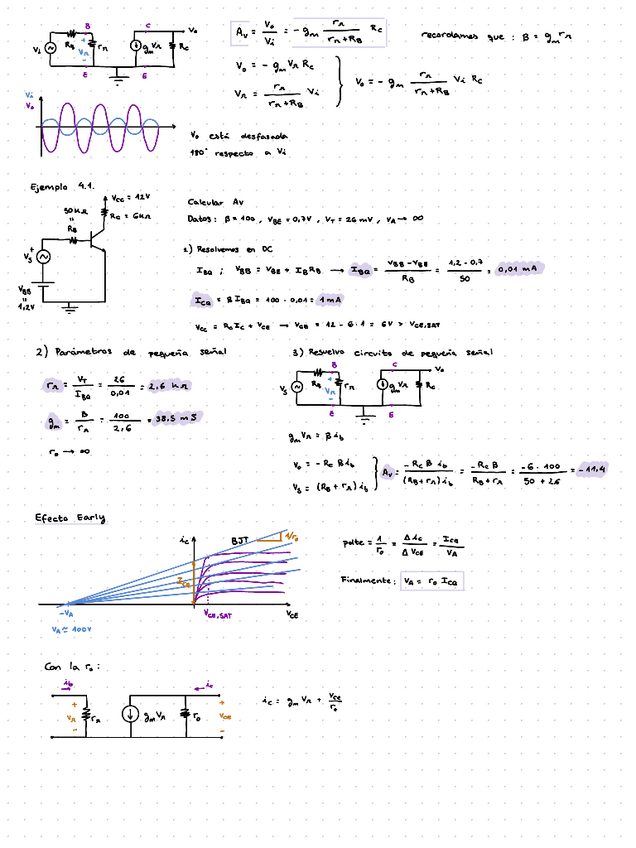 B C Vo
Vi RB Vπ rπ gmVπ RC
E E
Av = Vo/Vi = -gm rπ/(rπ+RB) RC
recordamos que : B = gm rπ
Vo = -gm Vπ RC
Vπ = rπ/(rπ+RB) Vi
Vo = -gm rπ/(rπ+RB) Vi RC
Vi
Vo
Vo está desfasada
180° respecto a Vi
Ejemplo 4.1.
VCC = 12V
RC = 6KΩ
50KΩ
"
RB
VS
VBB
"
1,2V
Calcular Av
Datos: β = 100 , VBE = 0,7V , VT = 26 mV , VA → ∞
1) Resolvemos en DC
IBQ ; VBB = VBE + IB RB → IBQ = (VBB - VBE)/RB = (1,2 - 0,7)/50 = 0,01 mA
ICQ = B IBQ = 100 · 0,01 = 1 mA
VCC = RC IC + VCE → VCE = 12 - 6 · 1 = 6V > VCE,SAT
2) Parámetros de pequeña señal
rπ = VT/IBQ = 26/0,01 = 2,6 KΩ
gm = B/rπ = 100/2,6 = 38,5 mS
ro → ∞
3) Resuelvo circuito de pequeña señal
B C Vo
VS RB Vπ rπ gmVπ RC
E E
gm Vπ = β ib
Vo = -RC B ib
VS = (RB + rπ) ib
Av = -RC B ib/(RB+rπ) ib = -RC B/(RB + rπ) = -6 · 100/(50 + 2,6) = -11,4
Efecto Early
iC BJT 1/ro
ICQ
-VA VCE,SAT VCE
VA ≃ 100V
pdte = 1/ro = Δic/ΔVCE = ICQ/VA
Finalmente: VA = ro ICQ
Con la ro:
ib ic
Vπ rπ gmVπ ro VCE
ic = gm Vπ + VCE/ro